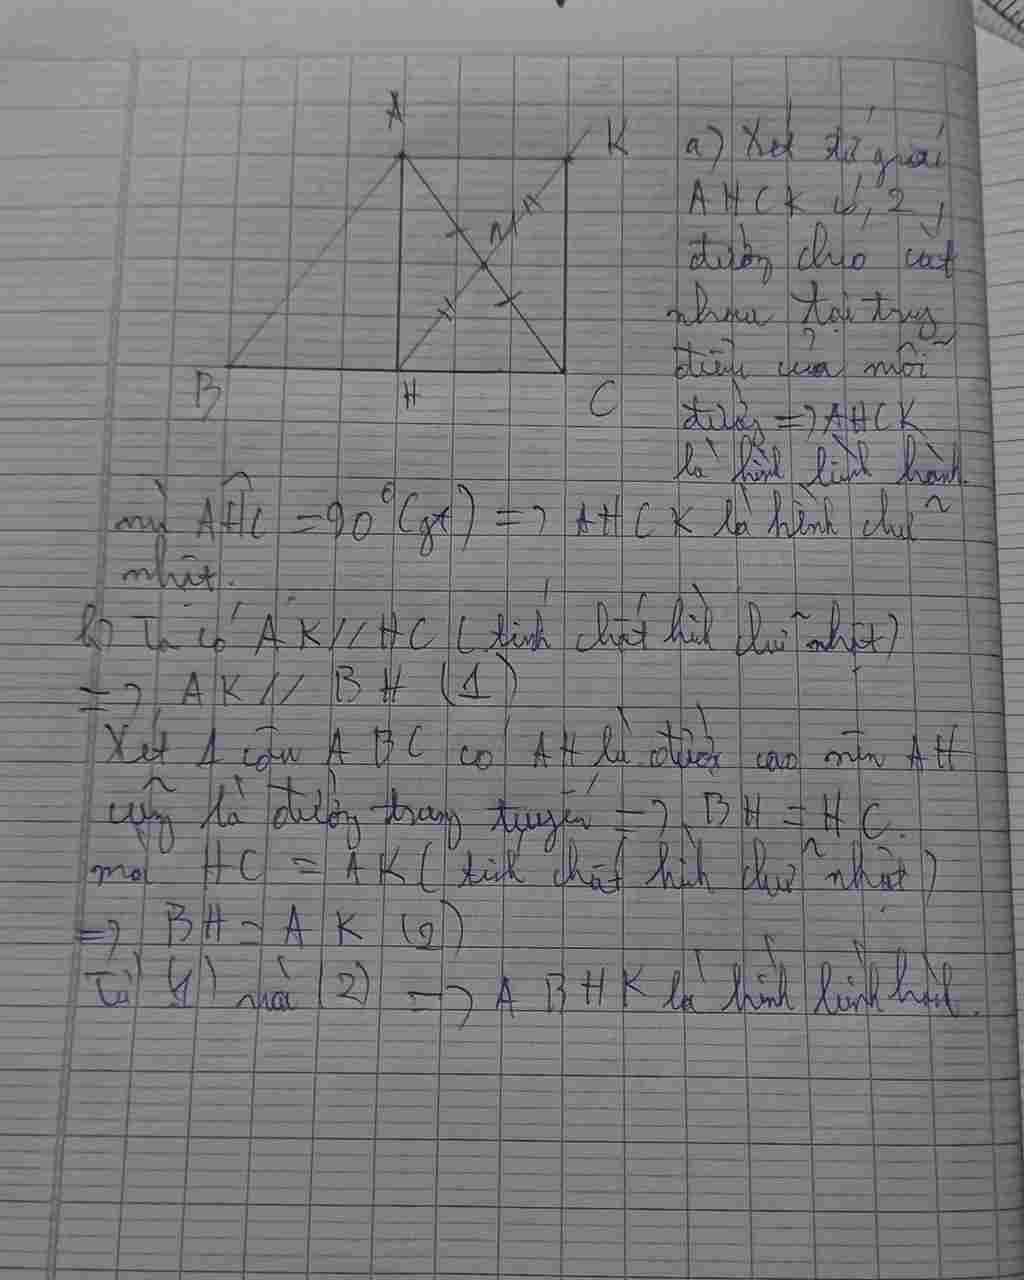 A
K
M
B
H
C
a) Xét tứ giác
AHCK có 2
đường chéo cắt
nhau tại trung
điểm của mỗi
đường => AHCK
là hình bình hành.
mà AĤC = 90° (gt) => AHCK là hình chữ
nhật.
b) Ta có AK // HC (tính chất hình chữ nhật)
=> AK // BH (1)
Xét Δ cân ABC có AH là đường cao nên AH
cũng là đường trung tuyến => BH = HC.
mà HC = AK (tính chất hình chữ nhật)
=> BH = AK (2)
Từ (1) và (2) => ABHK là hình bình hành.